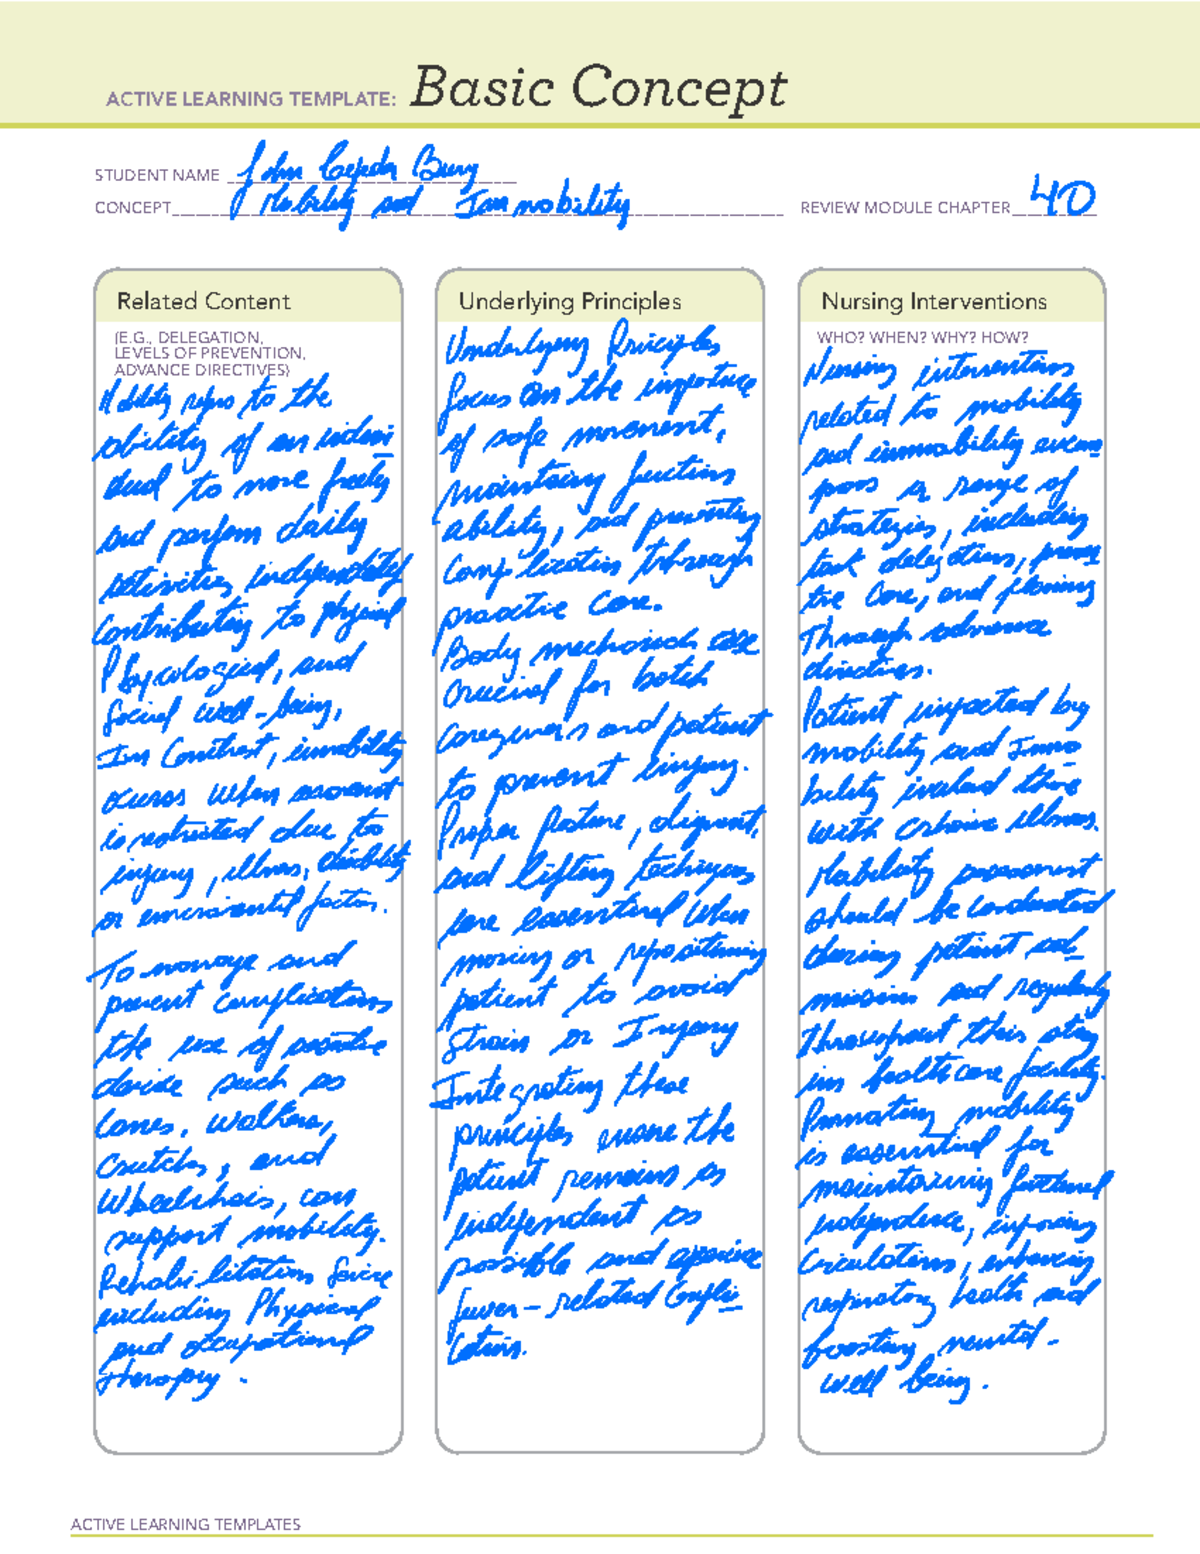 ACTIVE LEARNING TEMPLATE: Basic Concept
STUDENT NAME John Cepeda Burg
CONCEPT Mobility and Immobility REVIEW MODULE CHAPTER 40
Related Content
(E.G., DELEGATION,
LEVELS OF PREVENTION,
ADVANCE DIRECTIVES)
Mobility refers to the
ability of an indivi
dual to move freely
and perform daily
activities independently
contributing to physical
Phycological, and
social well-being,
In Contrast, immobility
occurs when movement
is restricted due to
injury, illness, disability
or enviromental factors.
To manage and
prevent complications
the use of assistive
device such as
Canes, walkers,
Crutches, and
Wheelchairs, can
support mobility.
Rehabilitation Service
including Physical
and occupational
therapy.
Underlying Principles
Underlying Principles
focus on the importance
of safe movement,
maintaining function
ability, and preventing
complication through
proactive Care.
Body mechanics are
crucial for both
caregivers and patient
to prevent injury.
Proper Posture, alignment,
and lifting techniques
are essential when
moving or repositioning
patient to avoid
strain or Injury
Integrating these
principles ensure the
patient remains as
independent as
possible and experience
fewer-related Compli
cations.
Nursing Interventions
WHO? WHEN? WHY? HOW?
Nursing interventions
related to mobility
and immobility encom
pass a range of
strategies, including
task delegation, preven
tive Care, and planning
Through advance
directives.
Patient impacted by
mobility and Immo
bility include those
with chronic illness.
Mobility assessment
should be conducted
during patient ad
mission and regularly
throughout their stay
in healthcare facility.
Promoting mobility
is essential for
maintaining functional
independence, improving
Circulation, enhancing
respiratory health and
boosting mental-
well being.
ACTIVE LEARNING TEMPLATES